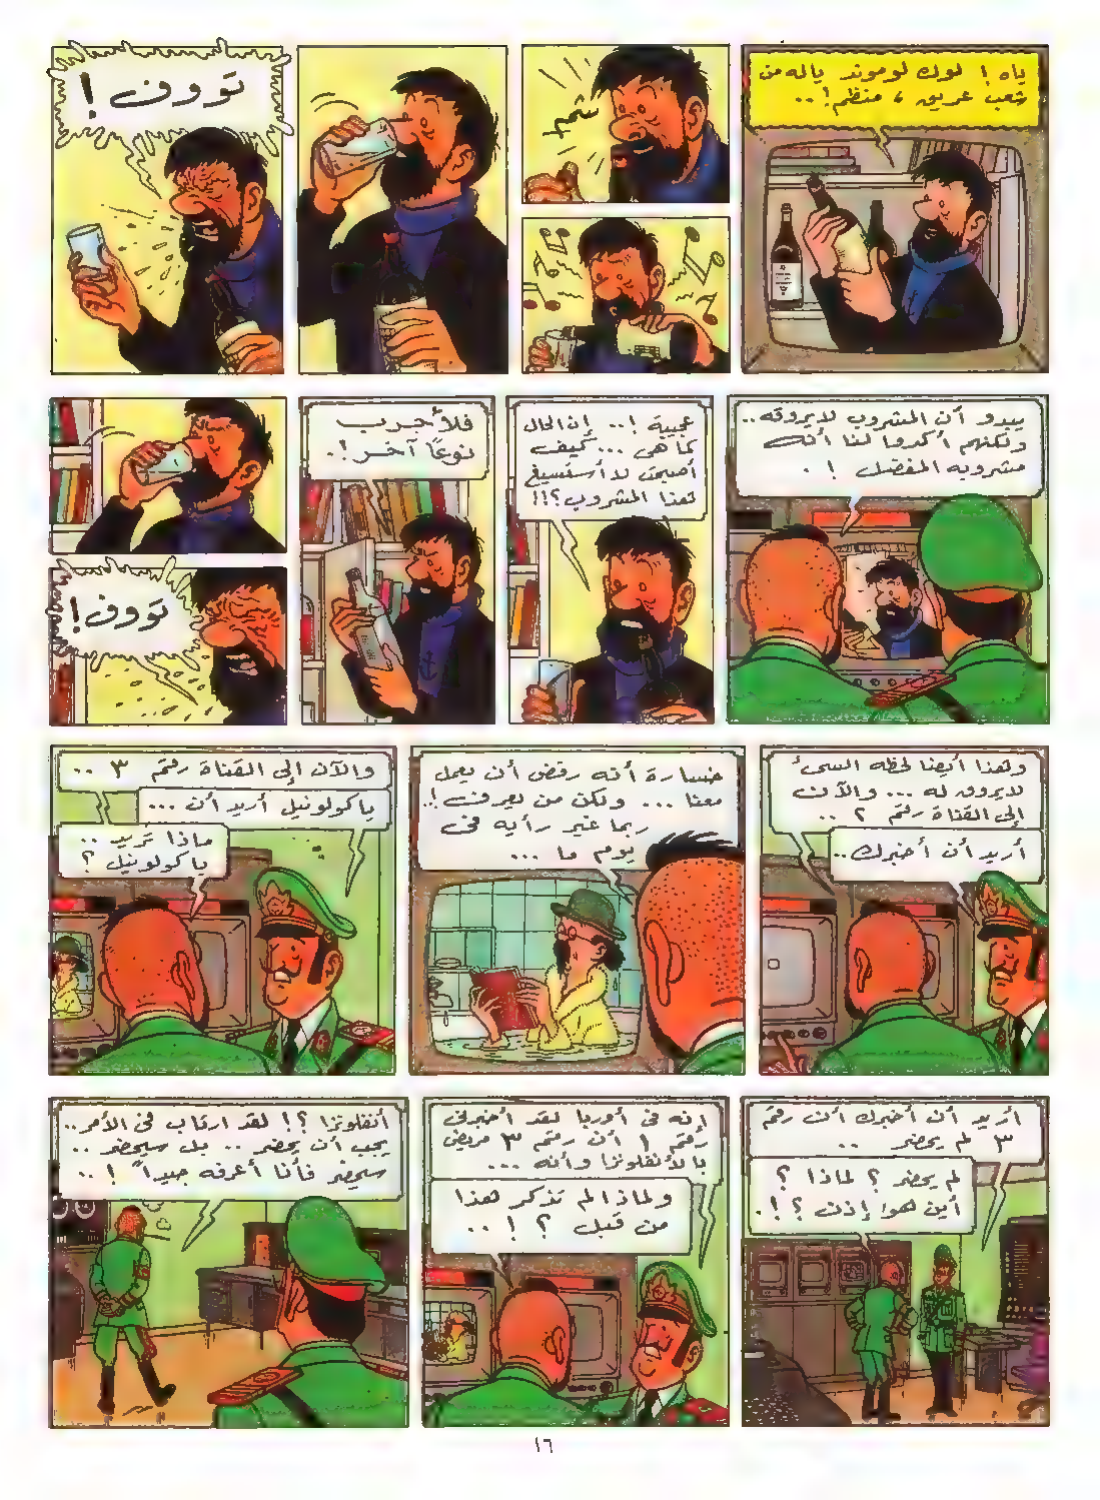 ياه ! لوك لوموند ياله من
شعب عريق ، منظم ! ..
شم
تووف !
يبدو أن المشروب لايروقه ..
ولكنهم أكدوا لنا أنه
مشروبه المفضل ! .
عجيبة ! .. إن الحال
كما هى ... كيف
أصبحت لا أستسيغ
هذا المشروب ؟!!
فلأجرب
نوعًا آخر ! .
تووف !
وهذا أيضا لحظه السئ
لايروق له ... والآن
إلى القناة رقم ٢ ..
أريد أن أخبرك ..
خسارة أنه رفض أن يعمل
معنا ... ولكن من يعرف ! .
ربما غير رأيه فى
يوم ما ...
والآن إلى القناة رقم ٣ ..
ياكولونيل أريد أن ...
ماذا تريد ..
ياكولونيل ؟
أريد أن أخبرك أن رقم
٣ لم يحضر ..
لم يحضر ؟ لماذا ؟
أين هو إذن ؟ ! .
إنه فى أوربا لقد أخبرنى
رقم ١ أن رقم ٣ مريض
بالأنفلونزا وأنه ...
ولماذا لم تذكر هذا
من قبل ؟ ! ..
أنفلونزا ؟! لقد ارتاب فى الأمر ..
يجب أن يحضر .. بل سيحضر ..
سيحضر فأنا أعرفه جيداً ! ..
١٦